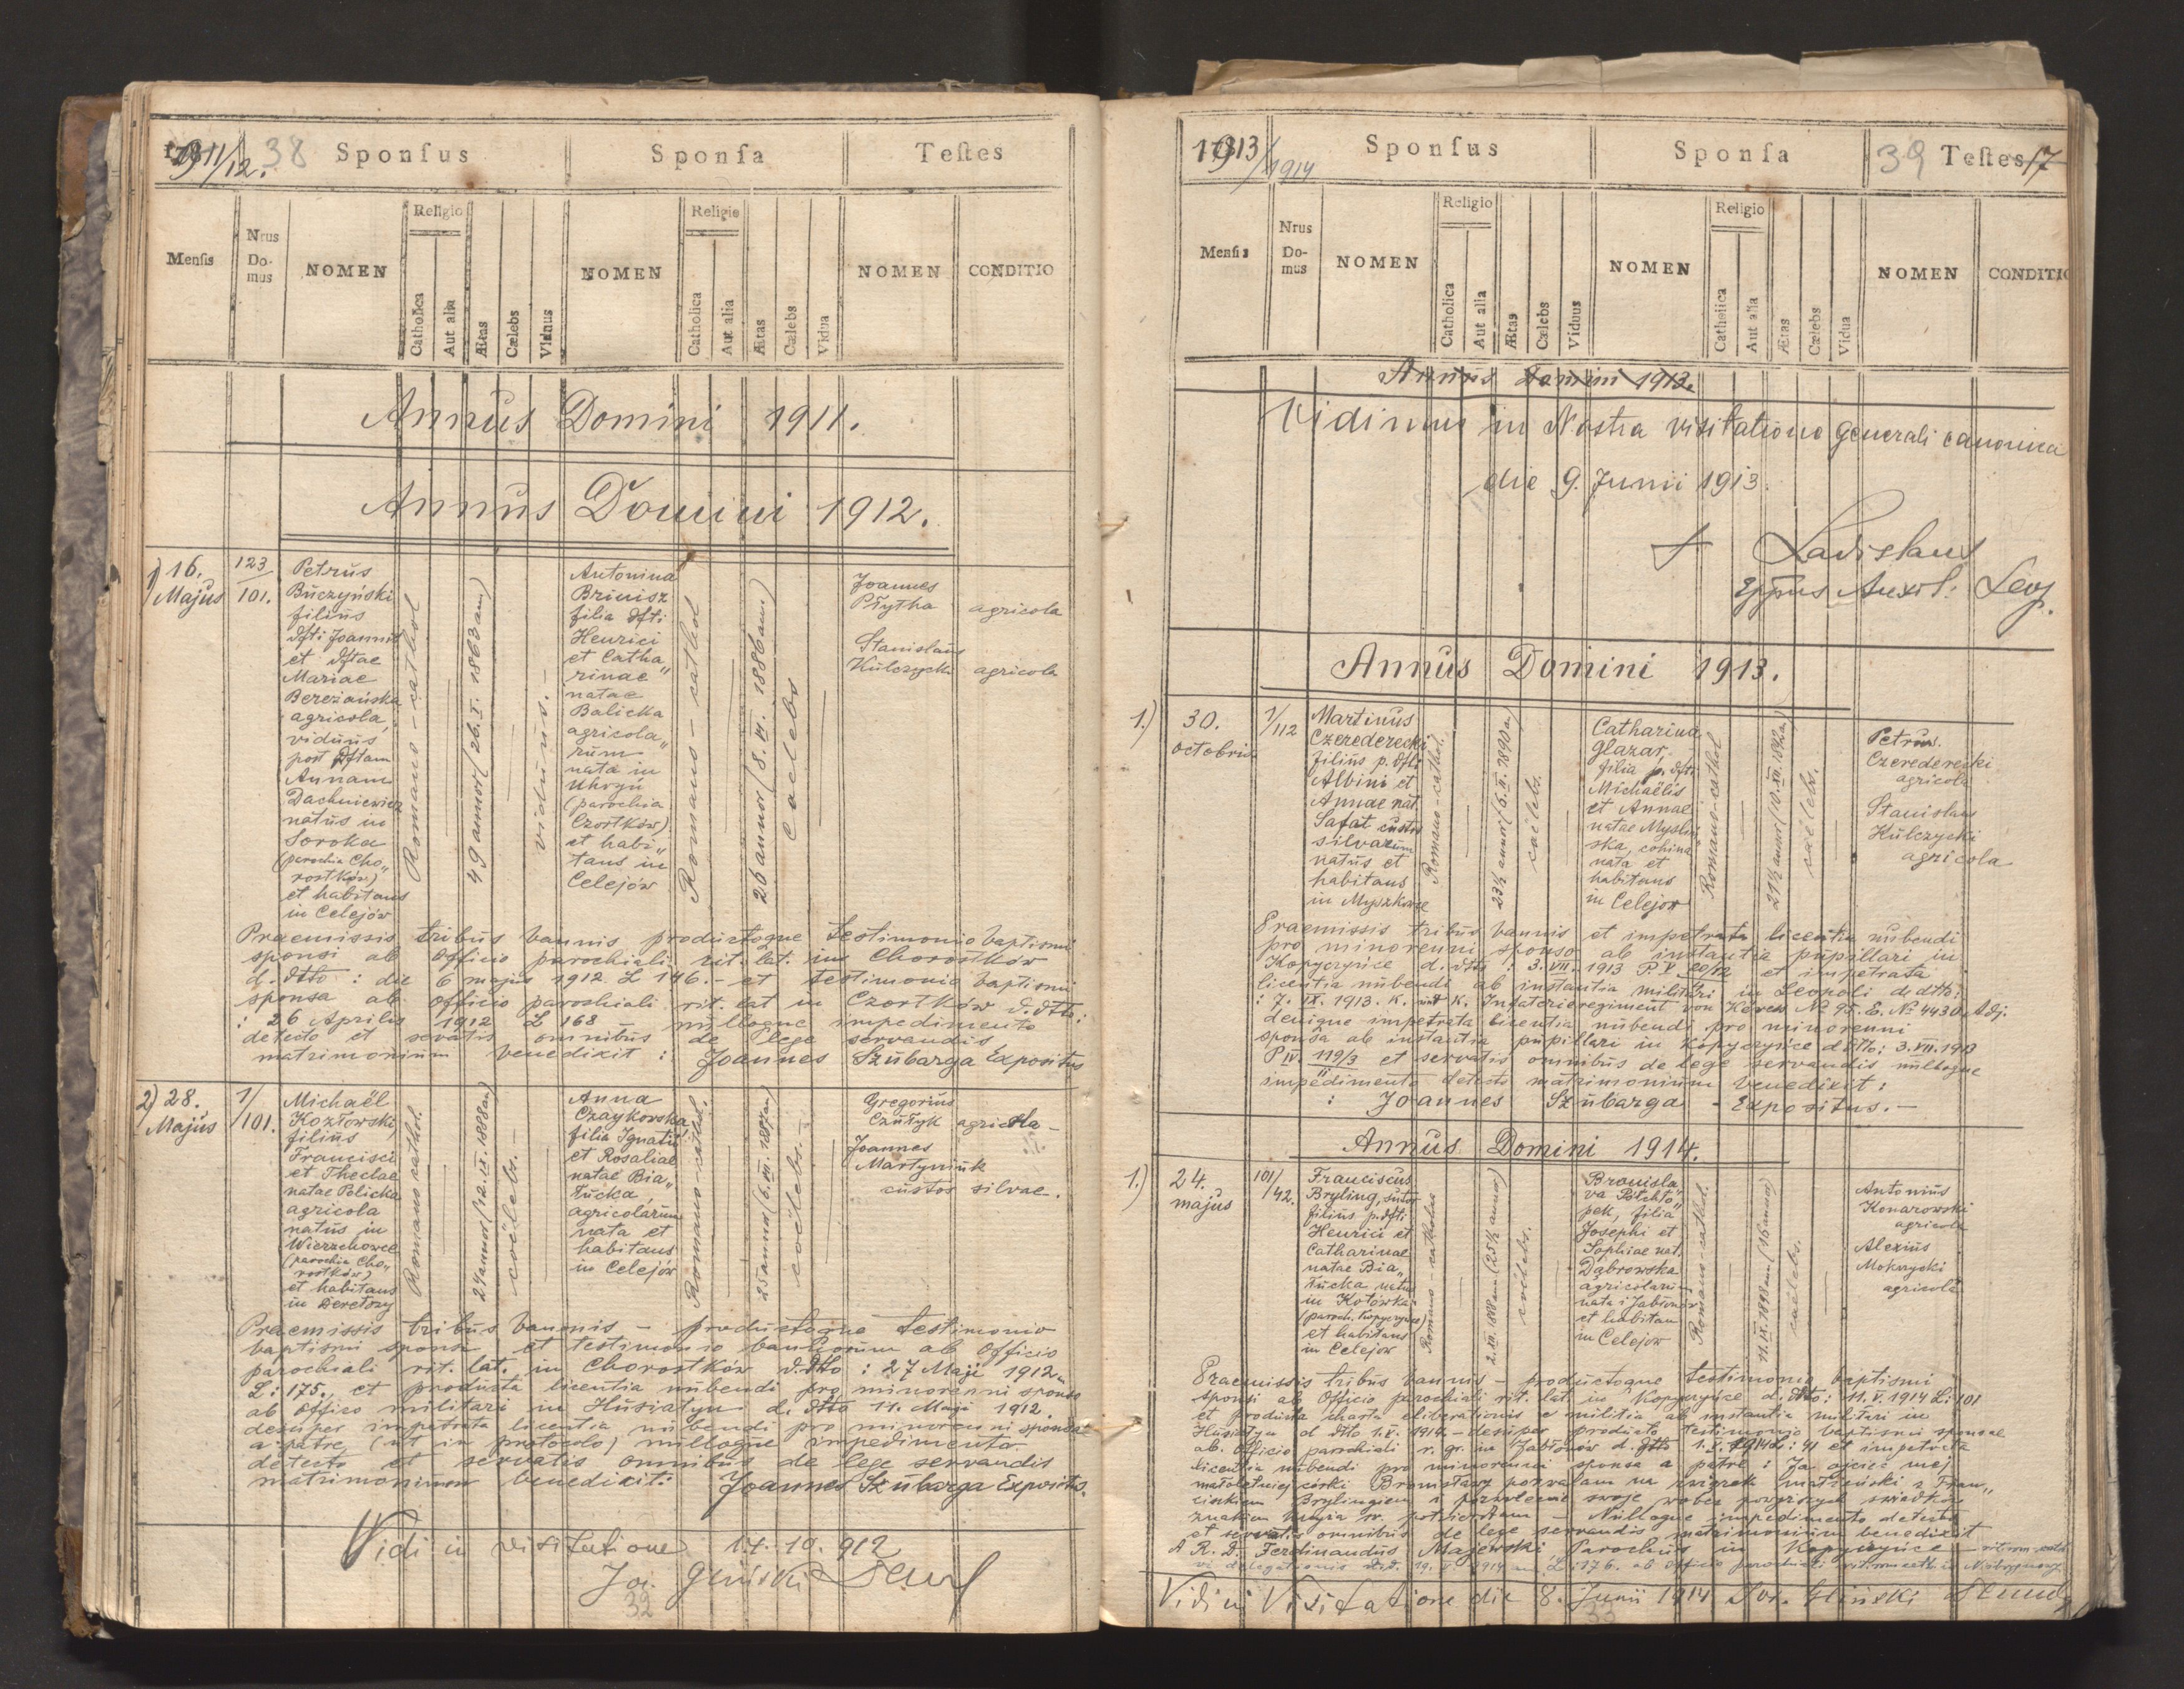 1911/12. 38 Sponsus Sponsa Testes
Mensis Nrus Domus NOMEN Religio Catholica Aut alia Ætas Cælebs Viduus NOMEN Religio Catholica Aut alia Ætas Cælebs Vidua NOMEN CONDITIO
Annus Domini 1911.
Annus Domini 1912.
1) 16. Majus
123/101.
Petrus
Buczyński
filius
dfti Joannis
et dftae
Mariae
Bereżańska
agricola,
viduus
post dftam
Annam
Dachniewicz
natus in
Soroka
(parochia Cho„
rostków)
et habitans
in Celejów
Romano-cathol
49 annor (26. I. 1863 ann)
viduus.-
Antonina
Brinisz
filia dfti
Henrici
et Catha„
rinae
natae
Balicka
agricola„
rum
nata in
Uhryń
(parochia
Czortków)
et habi„
tans in
Celejów
Romano-cathol
26 annor (8. VI. 1886 ann)
caelebs
Joannes
Płytha agricola
Stanislaus
Kulczycki agricola
Praemissis tribus bannis productoque testimonio baptismi
sponsi ab Officio parochiali rit. lat. in Chorostków
d. dtto: die 6 majus 1912 L 146.- et testimonio baptismi
sponsa ab officio parochiali rit. lat in Czortków d. dtto:
: 26 Aprilis 1912 L 168 nulloque impedimento
detecto et servatis omnibus de lege servandis
matrimonium benedixit: Joannes Szubarga Expositus
2) 28. Majus
1/101.
Michaël
Kozłowski,
filius
Francisci
et Theclae
natae Policka
agricola
natus in
Wierzchowce
(parochia Cho„
rostków)
et habitans
in Deretory
Romano cathol.
24 annor (12. IX. 1888 an)
coelebs.-
Anna
Czaykowska
filia Ignatii
et Rosaliae
natae Bia„
łucka,
agricolarum
nata et
habitans
in Celejów
Romano-cathol.
25 annor (6. III. 1887 an)
coelebs.-
Gregorius
Czułyk agricola-
Joannes
Martyniuk
custos silvae.
Praemissis tribus bannis - productoque testimonio
baptismi sponsi et testimonio bannorum ab Officio
parochiali rit. lat. in Chorostków d. dtto: 27 Maji 1912
L: 175., et producta licentia nubendi pro minorenni sponso
ab Officio militari in Husiatyn d. dtto 11. Maji 1912
desuper impetrata licentia nubendi pro minorenni sponsae
a patre (ut in protocolo) nulloque impedimento
detecto et servatis omnibus de lege servandis
matrimonium benedixit: Joannes Szubarga Expositus.
Vidi in visitatione 14. 10. 912
32
1913/1914 Sponsus Sponsa 39 Testes 17
Mensis Nrus Domus NOMEN Religio Catholica Aut alia Ætas Cælebs Viduus NOMEN Religio Catholica Aut alia Ætas Cælebs Vidua NOMEN CONDITIO
Annus Domini 1913.
Vidimus in Nostra visitatione generali canonica
die 9. Junii 1913.
† Ladislaus
Eppus Auxil: Leop.
Annus Domini 1913.
1.) 30. octobris
1/112
Martinus
Czerederecki
filius p. dfti
Albini et
Annae nat.
Safat custos
silvarum
natus et
habitans
in Myszkowce
Romano-cathol.
23½ annor (6. II. 1890 a)
caelebs.
Catharina
Glazar,
filia p. dfti
Michaëlis
et Annae
natae Myśliń
ska,
nata et
habitans
in Celejow
Romano-cathol
caelebs.
Petrus.
Czerederecki
agricola
Stanislaus
Kulczycki
agricola
Praemissis tribus bannis et impetrata licentia nubendi
pro minorenni sponso ab instantia pupillari in
Kopyczyńce d. dtto: 3. VII. 1913 P.V. 20/12 et impetrata
licentia nubendi ab instantia militari in Leopoli d. dtto:
: 7. IX. 1913. K. und K. Infanterieregiment von Növess No 95. E. No 4430 Adj.
denique impetrata licentia nubendi pro minorenni
sponsa ab instantia pupillari in Kopyczyńce d. dtto: 3. VII. 1913
P IV 119/3 et servatis omnibus de lege servandis nulloque
impedimento detecto matrimonium benedixit:
: Joannes Szubarga - Expositus.-
Annus Domini 1914.
1.) 24. majus
101/42.
Franciscus
Bryling, sutor
filius p. dfti
Henrici et
Catharinae
natae Bia„
łucka natus
in Kotówka
(paroch. Kopyczyńce)
et habitans
in Celejow
Romano-catholica
2. XII. 1888 ann (25½ annor)
coelebs.
Bronisla
va Półchło„
pek, filia
Josephi et
Sophiae nat.
Dąbrowska
agricolarum
nata i Jabłonów
et habitans
in Celejow
Romano-cathol.
11. IX. 1898 ann (16 annor)
caelebs.
Antonius
Konarowski
agricola
Alexius
Mokrycki
agricola
Praemissis tribus bannis - productoque testimonio baptismi
sponsi ab Officio parochiali rit. lat. in Kopyczyńce d. dtto: 11. V. 1914 L: 101
et producta charta liberationis e militia ab instantia militari in
Husiatyn d dtto 1. V. 1914.- desuper producto testimonio baptismi sponsae
ab Officio parochiali r. gr. in Jabłonów d. dtto 1. V. 1914 L: 41 et impetrata
licentia nubendi pro minorenni sponsa a patre: Ja ojciec mej
małoletniej córki Bronisławy pozwalam na związek małżeński z Fran„
ciszkiem Brylingiem i pozwolenie swoje wobec powyższych świadków
znakiem krzyża św. potwierdzam - Nulloque impedimento detecto
et servatis omnibus de lege servandis matrimonium benedixit
A. R. D. Ferdinandus Majewski Parochus in Kopyczyńce
Vidi in Visitatione die 8. Junii 1914 Jos. Gliński
33